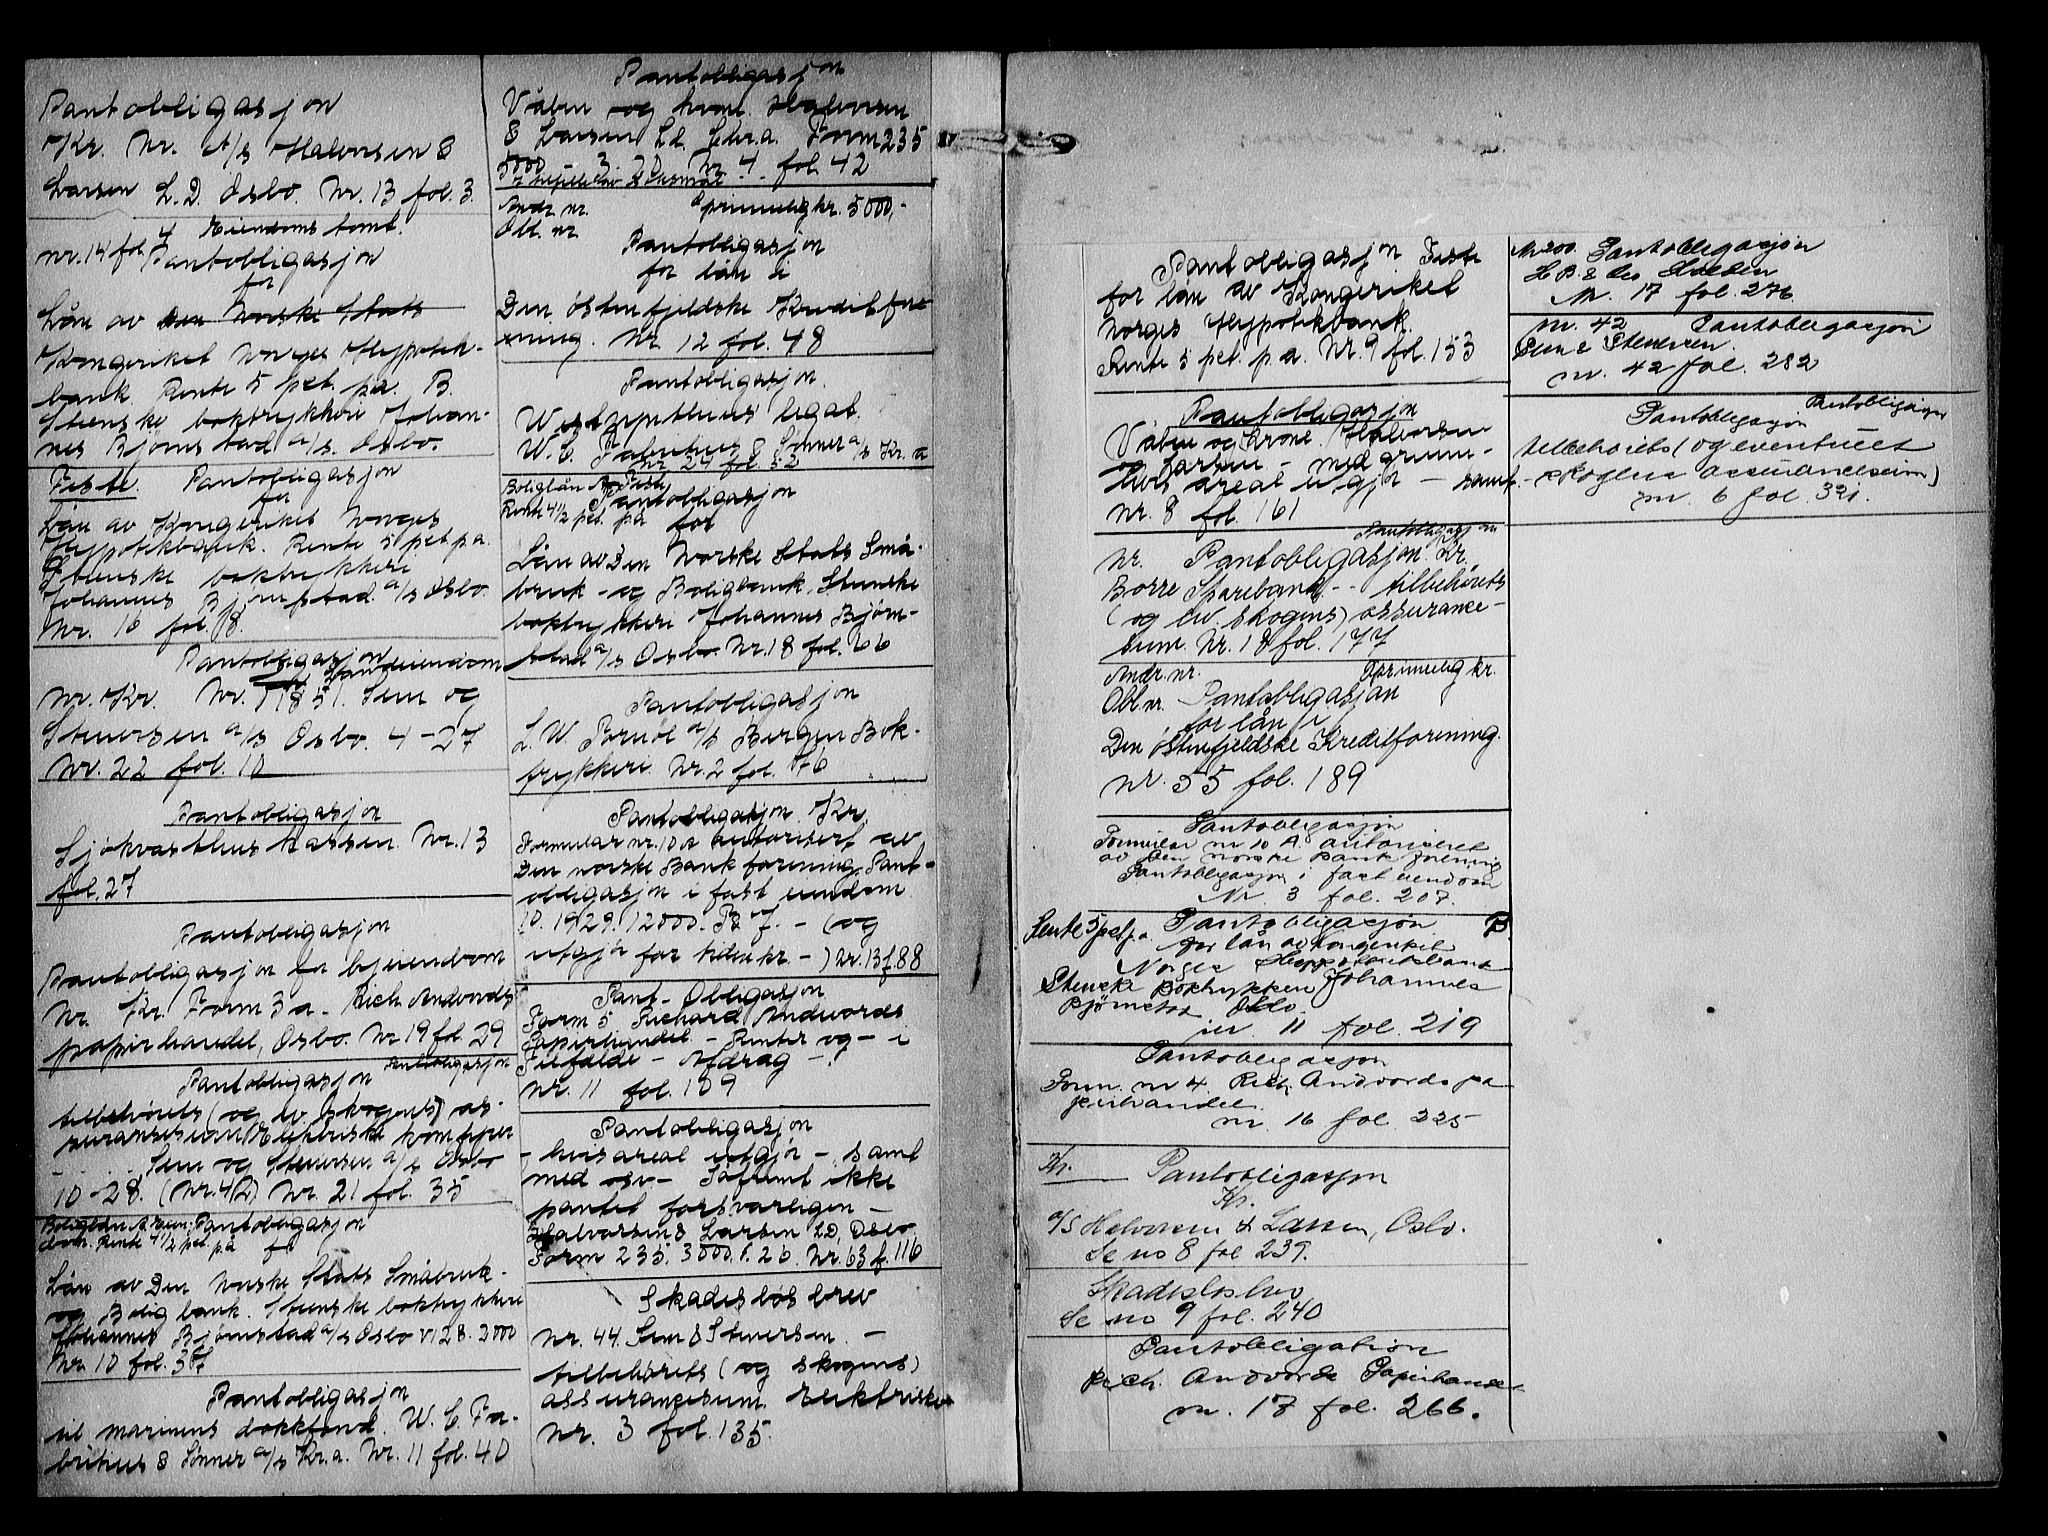 Pantobligasjon
Kr. Nr. A/s Halvorsen &
Larsen L.D. Oslo. Nr. 13 fol. 3.
nr. 14 fol 4 Eiendoms tomt.
Pantobligasjon
for
Lån av den Norske Stats
Kongeriket Norges Hypotek-
bank. Rente 5 pct. pa. B.
Stenske boktrykkeri Johan-
nes Bjørnstad a/s. Oslo.
Feste. Pantobligasjon
for
Lån av Kongeriket Norges
Hypotekbank. Rente 5 pct pa.
Stenske boktrykkeri
Johannes Bjørnstad. a/s Oslo.
Nr. 16 fol. 8.
Pantobligasjon
Nr. Kr. Nr. 1185. Sem og
Stenersen a/s Oslo. 4-27
Nr. 22 fol. 10
Pantobligasjon
Nr. 13
fol. 27
Pantobligasjon
Pantobligasjon for byeiendom
Nr. Kr. Form 3a. Rich Andvords
papirhandel, Oslo. Nr. 19 fol 29
Pantobligasjon
Pantobligasjon
tilbehørets (og ev. skogens) as-
suransesum Elektriske komfyrer
- . . . Sem og Stenersen a/s Oslo
10-28. (Nr. 42) Nr. 21 fol. 35
Boliglån A eien- Pantobligasjon
dom. Rente 4 1/2 pct. pa for
Lån av Den Norske Stats Småbruk-
og Bolig bank. Stenske boktrykkeri
Johannes Bjørnstad a/s Oslo VI 28. 2000
Nr. 10 fol. 37
Pantobligasjon
til marinens dokkfond. W. C. Fa-
britius & Sønner a/s Kr.a. Nr. 11 fol. 40
Pantobligasjon
Våben og krone. Halvorsen
& Larsen Ld. Chr.a. Form 235
5000 - 3. 20 Nr. 4 fol. 42
Andr nr. Oprinnelig kr. 5000,-
Obl. nr.
Pantobligasjon
for lån i
Den østenfjeldske Kreditfore-
ning. Nr 12 fol. 48
Pantobligasjon.
legat.
W. C. Fabritius & Sønner a/s Kr. a
nr 24 fol. 52
Boliglån A Feste
Rente 4 1/2 pct. pa Pantobligasjon
for
Lån av Den Norske Stats Små-
bruk- og Boligbank. Stenske
boktrykkeri Johannes Bjørn-
stad a/s Oslo. Nr. 18 fol. 66
Pantobligasjon
a/s Bergen Bok-
trykkeri. Nr. 2 fol. 76
Pantobligasjon. Kr.
Formular nr. 10 A autorisert av
Den norske Bankforening. Pant-
obligasjon i fast eiendom
10. 1929. 12000. B 7. - (og
utgjør for tiden kr. - ) Nr. 13 f. 88
Pant-Obligasjon
Form 5 Richard Andvords
Papirhandel - Renter og - i
Tilfælde - Afdrag -.
nr. 11 fol. 109
Pantobligasjon
- hvis areal utgjør -, samt
med osv - Såfremt ikke
pantet forsvarligen -
Halvorsen & Larsen LD, Oslo
Form 235. 3000. 6. 26. Nr. 63 f. 116
Skadesløs brev
Nr. 44. Sem & Stenersen. -
tilbehørets (og skogens)
assuransesum. Elektriske
Nr. 3 fol. 135.
Pantobligasjon Feste
for lån av Kongeriket
Norges Hypotekbank.
Rente 5 pct. p.a. Nr. 9 fol. 153
Pantobligasjon
Våben og Krone. Halvorsen
og Larsen - med grunn-
hvis areal utgjør - samt -
nr. 8 fol. 161
Pantobligasjon
Nr. Pantobligasjon. Kr.
Borre Sparebank - - tilbehørets
(og ev. skogens) assurance-
sum. Nr. 18 fol. 177
Andr. nr. Oprinnelig kr.
Obl nr. Pantobligasjon
for lån i
Den østenfjeldske Kreditforening.
nr. 55 fol. 189
Pantobligasjon
Formular nr 10 A. autoriseret
av Den norske Bank forening
Pantobligasjon i fast eiendom
Nr. 3 fol. 207.
Rente 5 pct p.a. Pantobligasjon B.
for lån av Kongeriket
Norges Hypotekbank
Stenske Boktrykkeri Johannes
Bjørnstad Oslo.
nr. 11 fol. 219
Pantobligasjon
Form. nr 4. Rich. Andvords pa-
pirhandel.
nr. 16 fol. 225
Kr. Pantobligasjon
Kr.
a/s Halvorsen & Larsen, Oslo.
Se no 8 fol 239.
Skadesløsbrev
Se no 9 fol. 240
Pantobligation
Rich. Andvords Papirhandel
nr. 17 fol. 266.
Nr 200. Pantobligasjon
Nr. 17 fol. 276
nr. 42 Pantobligasjon
Sem & Stenersen.
nr. 42 fol. 282
Pantobligasjon
Pantobligasjon
tilbehørets (og eventuelt
skogens assurancesum)
nr. 6 fol. 321.